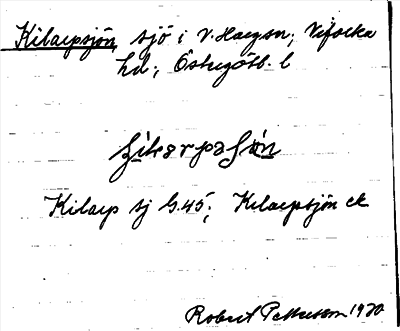 Kilarpsjön, sjö i V. Hargsn; Vifolka
hd; Östergötl. l
Kilarp sj G.45; Kilarpsjön ek
Robert Pettersson 1920